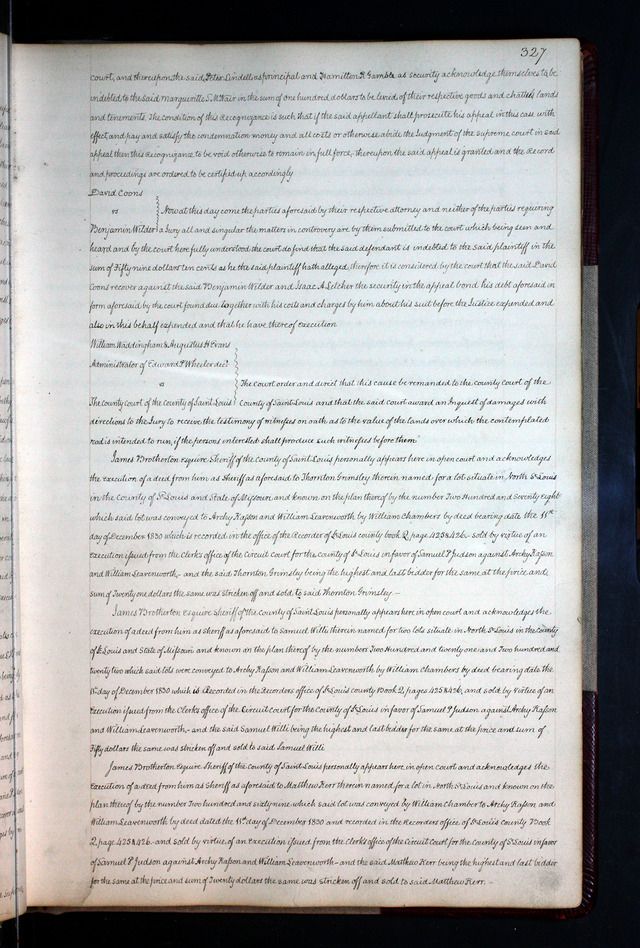 327
court, and thereupon the said Peter Lindell as principal and Hamilton R Gamble as security acknowledge themselves to be
indebted to the said Marguerite S. McNair in the sum of one hundred dollars to be levied of their respective goods and chattels lands
and tenements. The condition of this recognizance is such that if the said appellant shall prosecute his appeal in this case with
effect, and pay and satisfy the condemnation money and all costs or otherwise abide the Judgment of the supreme court in said
appeal then this recognizance to be void otherwise to remain in full force, thereupon the said appeal is granted and the record
and proceedings are ordered to be certified up accordingly
David Coons
vs Now at this day come the parties aforesaid by their respective attorney and neither of the parties requiring
Benjamin Wilder a Jury all and singular the matters in controversy are by them submitted to the court which being seen and
heard and by the court here fully understood the court do find that the said defendant is indebted to the said plaintiff in the
sum of Fifty nine dollars ten cents as he the said plaintiff hath alleged, therefore it is considered by the court that the said David
Coons recover against the said Benjamin Wilder and Isaac A Letcher the security in the appeal bond his debt aforesaid in
form aforesaid by the court found due together with his costs and charges by him about his suit before the Justice expended and
also in this behalf expended and that he have thereof execution
William Waddingham & Augustus H Evans
Administrator of Edward P Wheeler decd
vs The Court order and direct that this cause be remanded to the county court of the
The county court of the county of Saint Louis County of Saint Louis and that the said court award an Inquest of damages with
directions to the Jury to receive the testimony of witnesses on oath as to the value of the lands over which the contemplated
road is intended to run, if the persons interested shall produce such witnesses before them"
James Brotherton esquire Sheriff of the County of Saint Louis personally appears here in open court and acknowledges
the execution of a deed from him as Sheriff as aforesaid to Thornton Grimsley therein named for a lot situate in North St Louis
in the County of St Louis and State of Missouri, and known on the plan thereof by the number Two Hundred and Seventy eight
which said lot was conveyed to Archy Kasson and William Leavenworth by William Chambers by deed bearing date the 11th
day of December 1830 which is recorded in the office of the Recorder of St Louis county book 2, page 425 & 426.- sold by virtue of an
execution issued from the Clerks office of the Circuit Court for the county of St Louis in favor of Samuel P Judson against Archy Kasson
and William Leavenworth,- and the said Thornton Grimsley being the highest and last bidder for the same at the price and
sum of Twenty one dollars the same was stricken off and sold to said Thornton Grimsley. -
James Brotherton esquire Sheriff of the County of Saint Louis personally appears here in open court and acknowledges the
execution of a deed from him as sheriff as aforesaid to Samuel Willi therein named for two lots situate in North St Louis in the county
of St Louis and State of Missouri and known on the plan thereof by the numbers Two Hundred and twenty one and Two Hundred and
twenty two which said lots were conveyed to Archy Kasson and William Leavenworth by William Chambers by deed bearing date the
11th day of December 1830 which is Recorded in the Recorders office of St Louis county Book 2, pages 425 & 426, and sold by virtue of an
execution issued from the Clerks office of the Circuit Court for the County of St Louis in favor of Samuel P Judson against Archy Kasson
and William Leavenworth,- and the said Samuel Willi being the highest and last bidder for the same at the price and sum of
Fifty dollars the same was stricken off and sold to said Samuel Willi
James Brotherton esquire Sheriff of the county of Saint Louis personally appears here in open court and acknowledges the
execution of a deed from him as Sheriff as aforesaid to Matthew Kerr therein named for a lot in North St Louis and known on the
plan thereof by the number Two hundred and sixty nine which said lot was conveyed by William Chamber to Archy Kasson and
William Leavenworth by deed dated the 11th day of December 1830 and recorded in the Recorders office of St Louis County Book
2, page 425 & 426.- and sold by virtue of an execution issued from the Clerks office of the Circuit Court for the County of St Louis in favor
of Samuel P Judson against Archy Kasson and William Leavenworth - and the said Matthew Kerr being the highest and last bidder
for the same at the price and sum of Twenty dollars the same was stricken off and sold to said Matthew Kerr. -